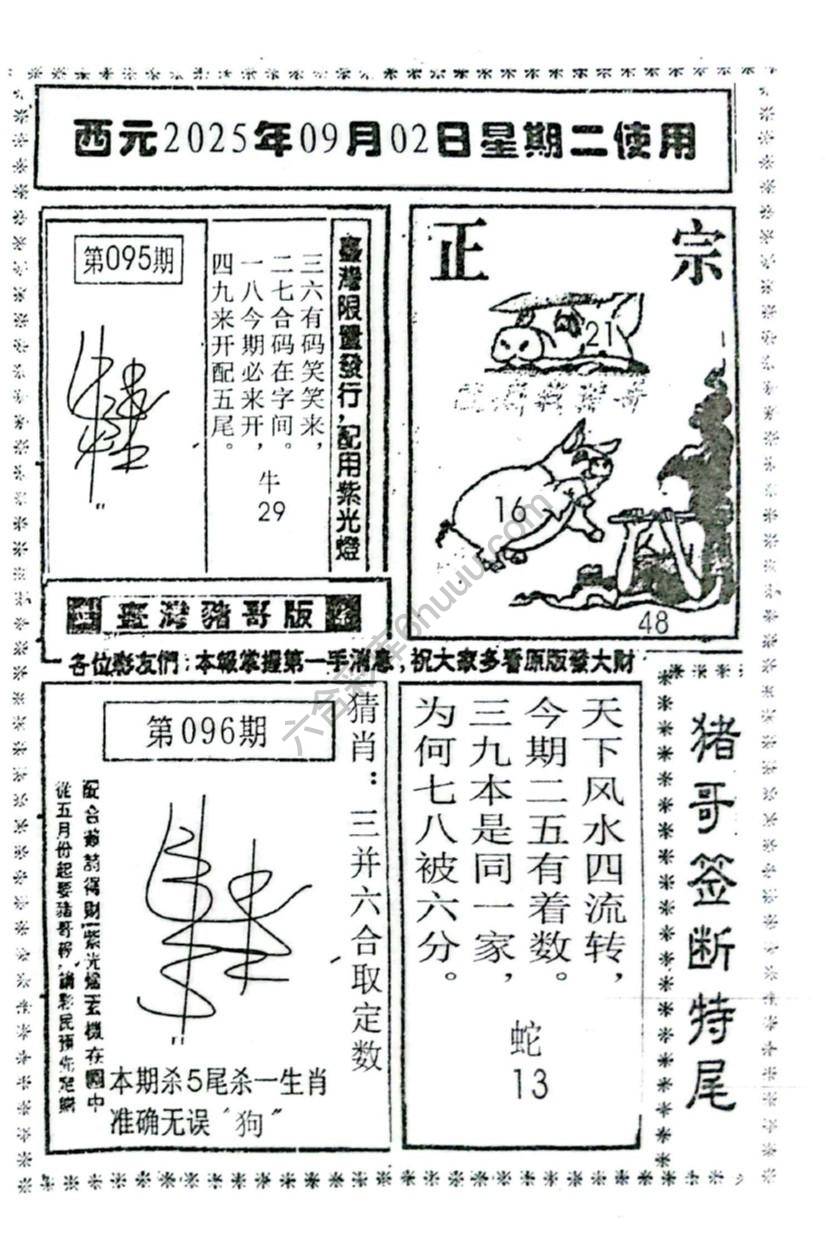 西元2025年09月02日星期二使用
第095期
三六有码笑笑来，
二七合码在字间。
一八今期必来开，
四九来开配五尾。
牛
29
臺灣限量發行，配用紫光燈
正宗
21
16
48
臺灣豬哥版
各位彩友們：本報掌握第一手消息，祝大家多看原版發大財
第096期
猜肖：三并六合取定数
從五月份起要豬哥報，請彩民預先定購
本期杀5尾杀一生肖
准确无误〝狗〞
天下风水四流转，
今期二五有着数。
三九本是同一家，
为何七八被六分。
蛇
13
猪哥签断特尾
六合彩库6huuu.com